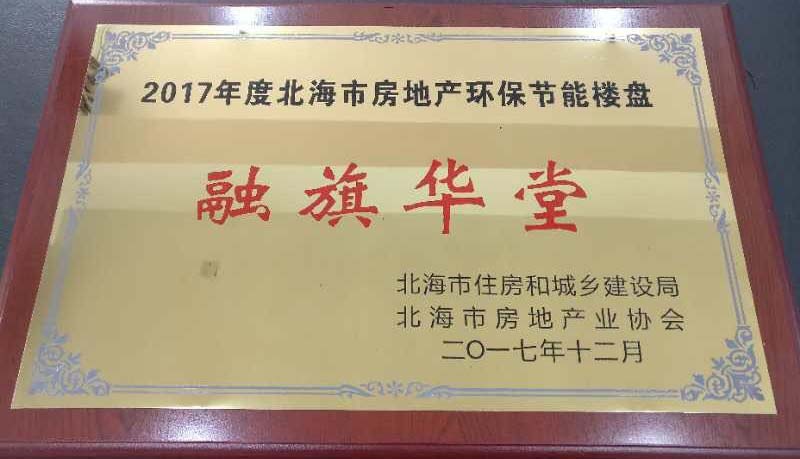 2017年度北海市房地产环保节能楼盘
融旗华堂
北海市住房和城乡建设局
北海市房地产业协会
二〇一七年十二月